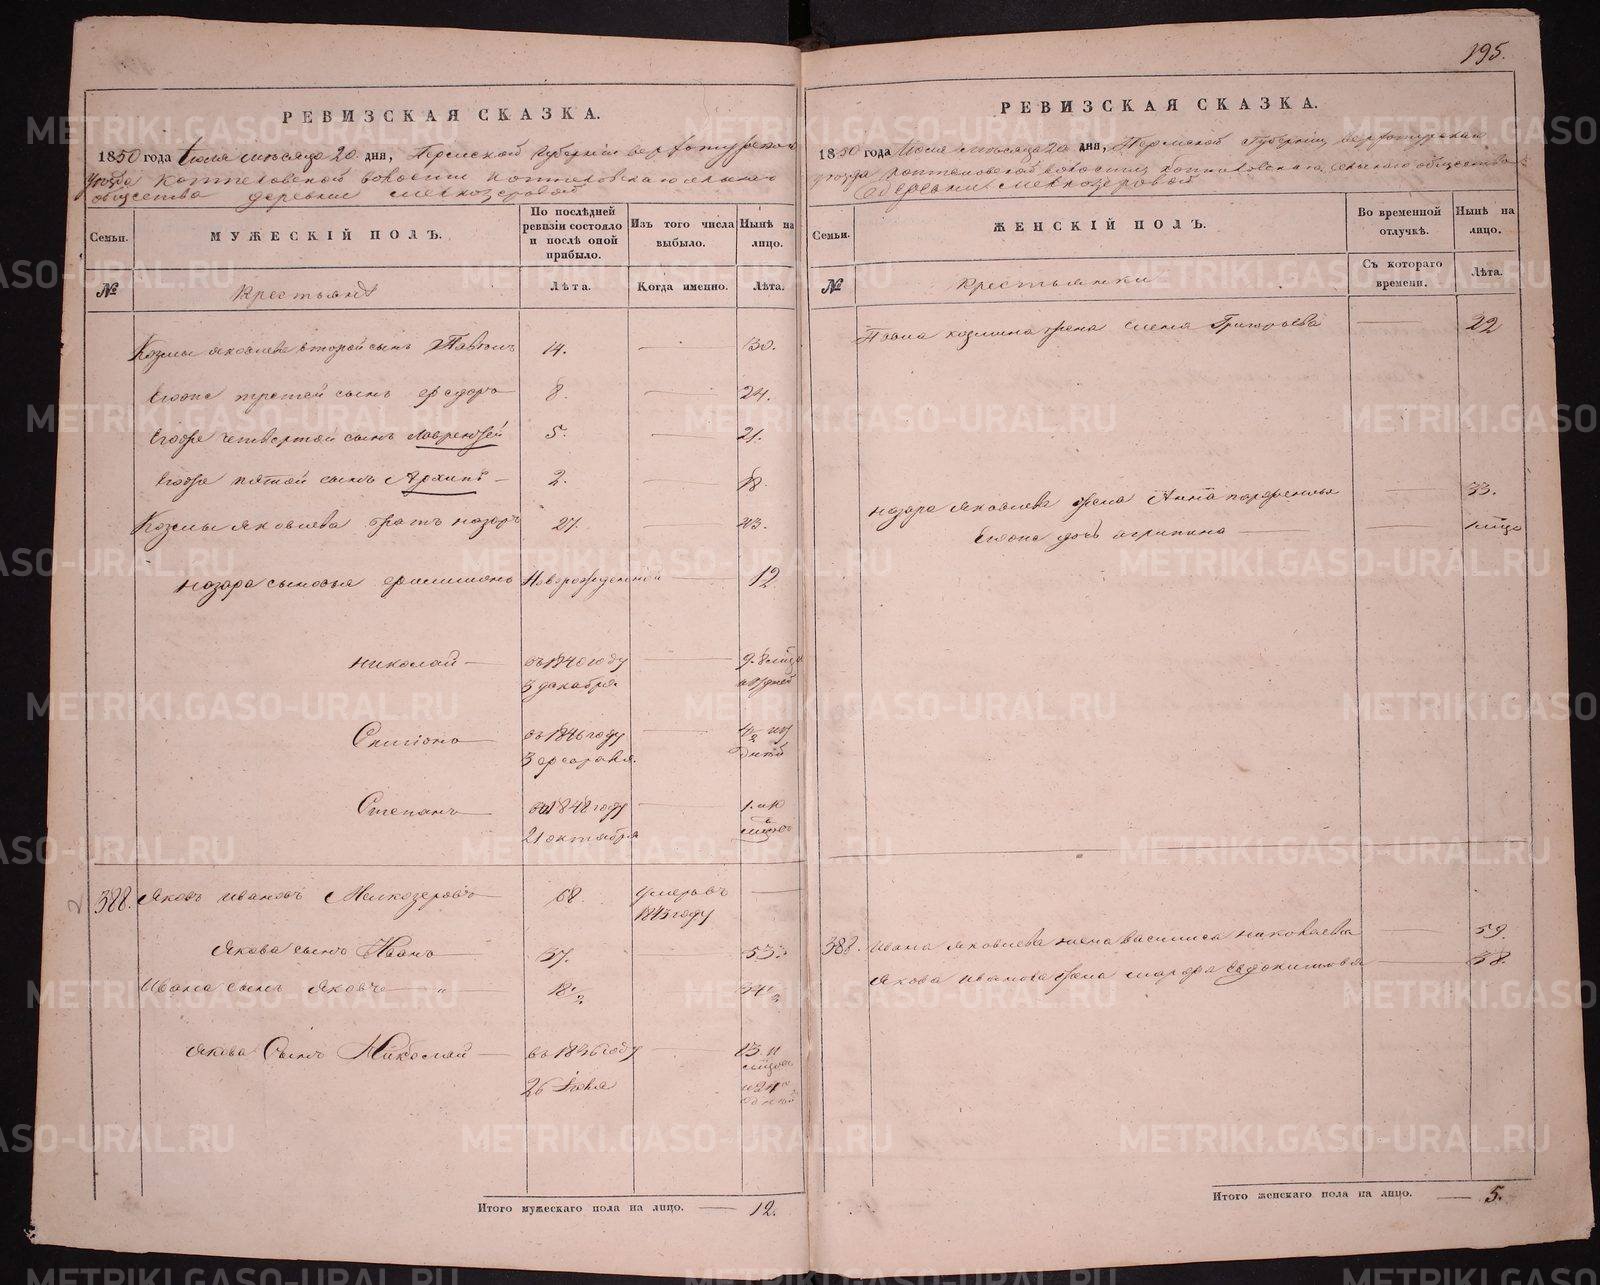 195.
РЕВИЗСКАЯ СКАЗКА.
1850 года Июля месяца 20 дня, Пермской Губернии Верхотурскаго
уезда Коптеловской волости Коптеловскаго сельскаго
общества деревни Мелкозеровой
Семьи.
МУЖЕСКІЙ ПОЛЪ.
По послѣдней ревизіи состояло и послѣ оной прибыло.
Изъ того числа выбыло.
Нынѣ на лицо.
№
Крестьянъ
Лѣта.
Когда именно.
Лѣта.
Козмы Яковлева второй сынъ Павелъ 14. — 30.
Егоже третей сынъ Федоръ 8. — 24.
Егоже четвертой сынъ Лаврентей 5. — 21.
Егоже пятой сынъ Архипъ 2. — 18.
Козмы Яковлева братъ Назаръ 27. — 43.
Назара сыновья Филимонъ Новорожденной 12
Николай — въ 1840 году — 9. 8 мцовъ
3 декабря
въ 1846 году — 4
3 февраля. дней
Степанъ — 1848 году — 1. и
21 октября мцовъ
388. Яковъ Ивановъ Мелкозеровъ 68. умеръ въ —
1843 году
Якова сынъ Иванъ — 37. — 53.
Ивана сынъ Яковъ — „ — 18 1/2 — 34 1/2
Якова Сынъ Николай — въ 1836 году — 13 и
мцовъ
26 и 24
дней
Итого мужескаго пола на лицо. — 12.
РЕВИЗСКАЯ СКАЗКА.
1850 года Июля месяца 20 дня, Пермской Губернии Верхотурскаго
уезда Коптеловской волости Коптеловскаго сельскаго общества
деревни Мелкозеровой
Семьи.
ЖЕНСКІЙ ПОЛЪ.
Во временной отлучкѣ.
Нынѣ на лицо.
№
Крестьянки
Съ котораго времени.
Лѣта.
Павла Козмина жена Григорьева — 32
Назара Яковлева жена Анна Парфенова — 33.
Егоже дочь Агрипина —
388. Ивана Яковлева жена Василиса Николаева — 59.
Якова Иванова жена Марфа Евдокимова — 38.
Итого женскаго пола на лицо. — 5.
METRIKI.GASO-URAL.RU